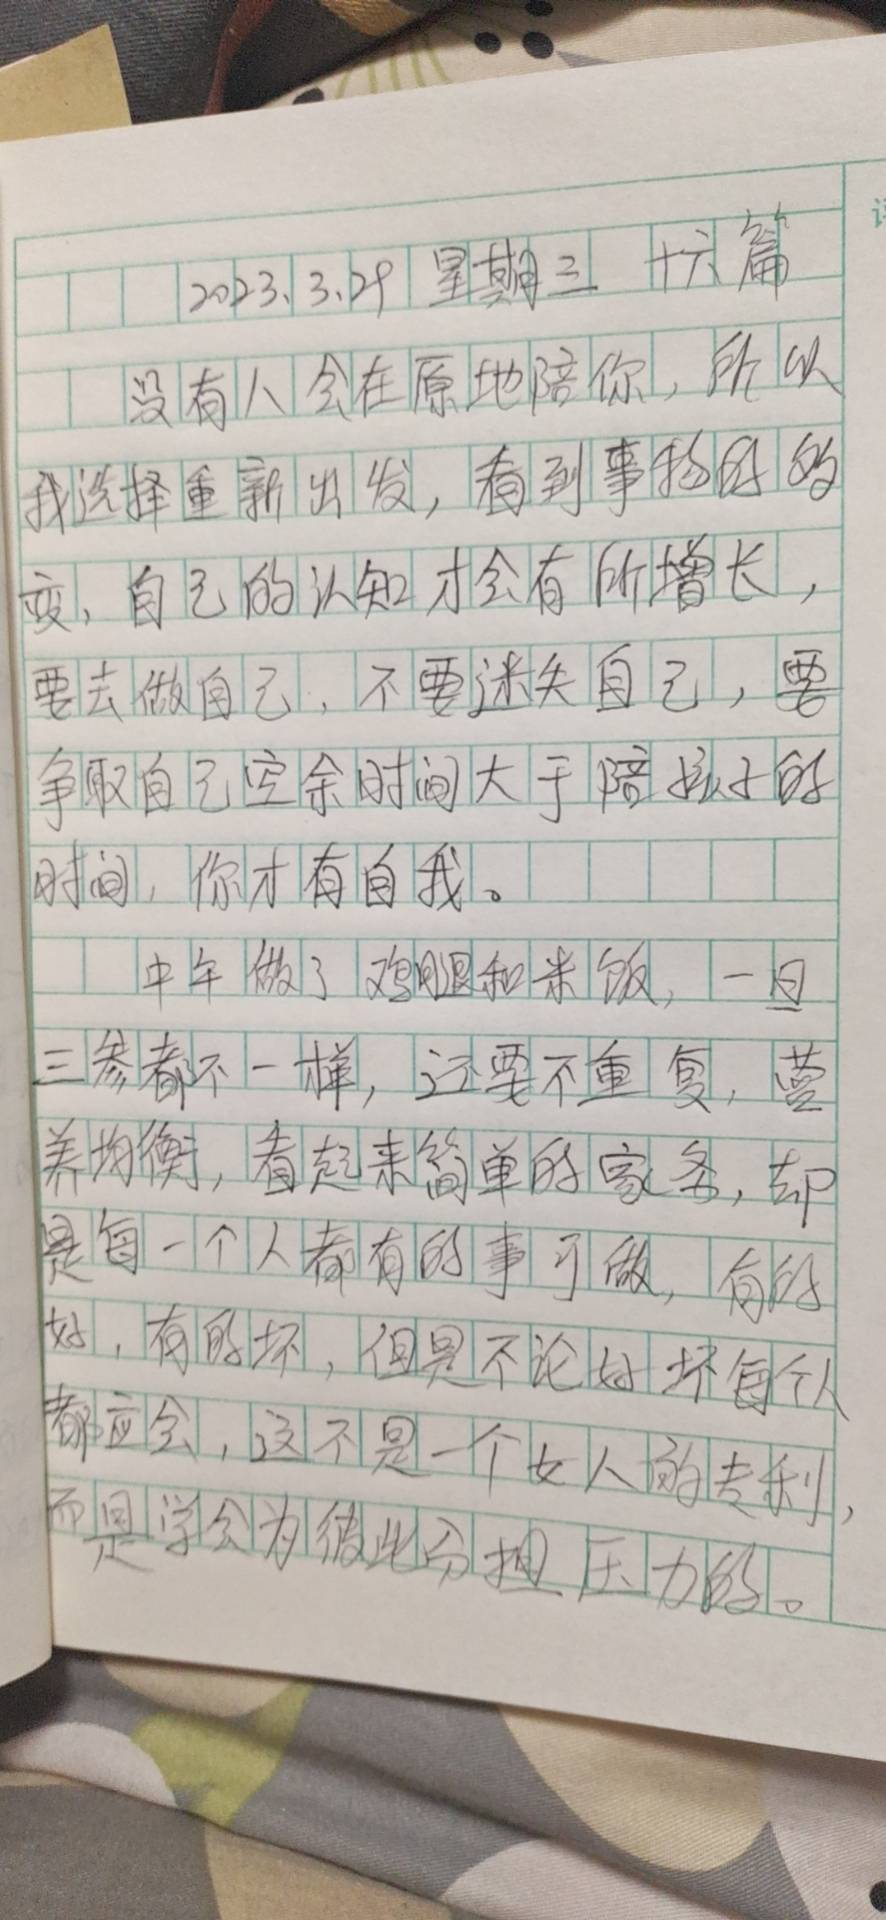 2023.3.29 星期三 十六篇
没有人会在原地陪你，所以
我选择重新出发，看到事物的的
变，自己的认知才会有所增长，
要去做自己，不要迷失自己，要
争取自己空余时间大于陪孩子的
时间，你才有自我。
中午做了鸡腿和米饭，一日
三参都不一样，还要不重复，营
养均衡，看起来简单的家务，却
是每一个人都有的事可做，有的
好，有的坏，但是不论好坏每个人
都应会，这不是一个女人的专利，
而是学会为彼此分担压力的。